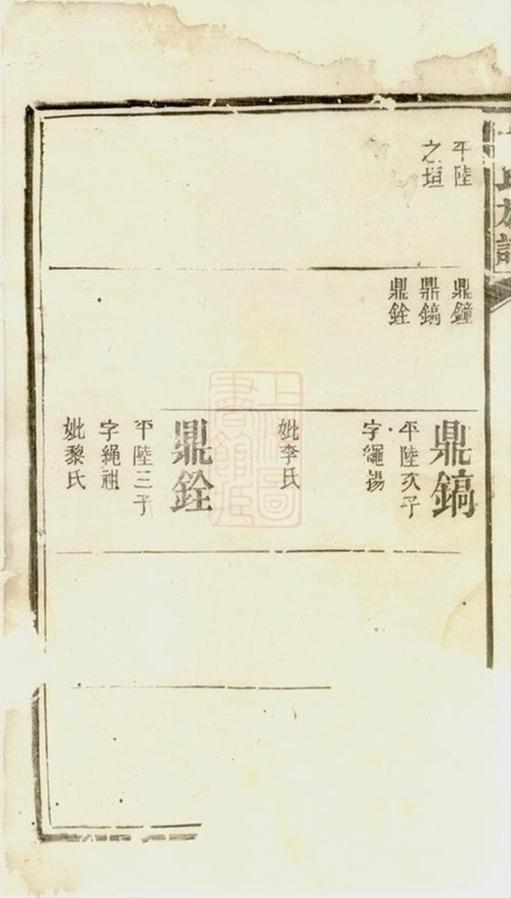 氏族譜
平陸
之垣
鼎鐘
鼎鎬
鼎銓
鼎鎬
平陸次子
字繩揚
妣李氏
鼎銓
平陸三子
字繩祖
妣黎氏
上海圖書館藏